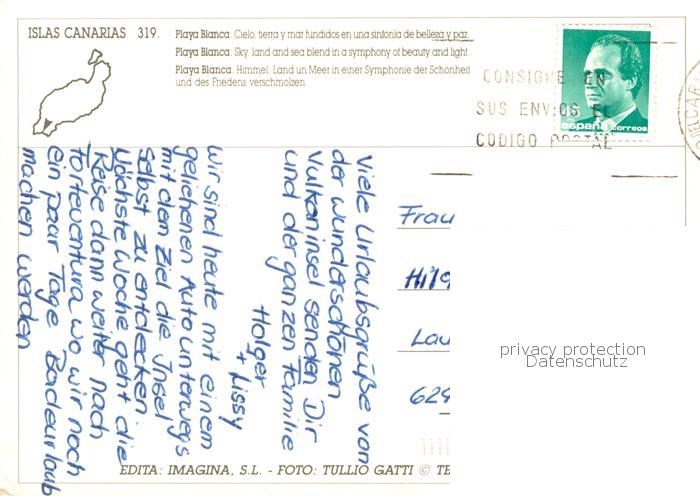 ISLAS CANARIAS 319.
Playa Blanca. Cielo, tierra y mar fundidos en una sinfonía de belleza y paz.
Playa Blanca. Sky, land and sea blend in a symphony of beauty and light.
Playa Blanca. Himmel, Land un Meer in einer Symphonie der Schönheit
und des Friedens verschmolzen.
CONSIGNE EN
SUS ENVIOS EL
CODIGO POSTAL
españa correos
Viele Urlaubsgrüße von
der wunderschönen
Vulkaninsel senden Dir
und der ganzen Familie
Holger
+ Lissy
Wir sind heute mit einem
geliehenen Auto unterwegs
mit dem Ziel die Insel
selbst zu entdecken
Nächste Woche geht die
Reise dann weiter nach
Forteventura wo wir noch
ein paar Tage Badeurlaub
machen werden
Frau
Hil
Lau
62
privacy protection
Datenschutz
EDITA: IMAGINA, S.L. - FOTO: TULLIO GATTI © TE